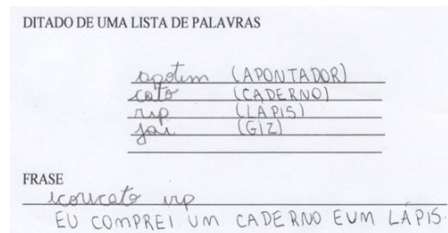 DITADO DE UMA LISTA DE PALAVRAS
apotim (APONTADOR)
cato (CADERNO)
(LÁPIS)
(GIZ)
FRASE
EU COMPREI UM CADERNO E UM LÁPIS.